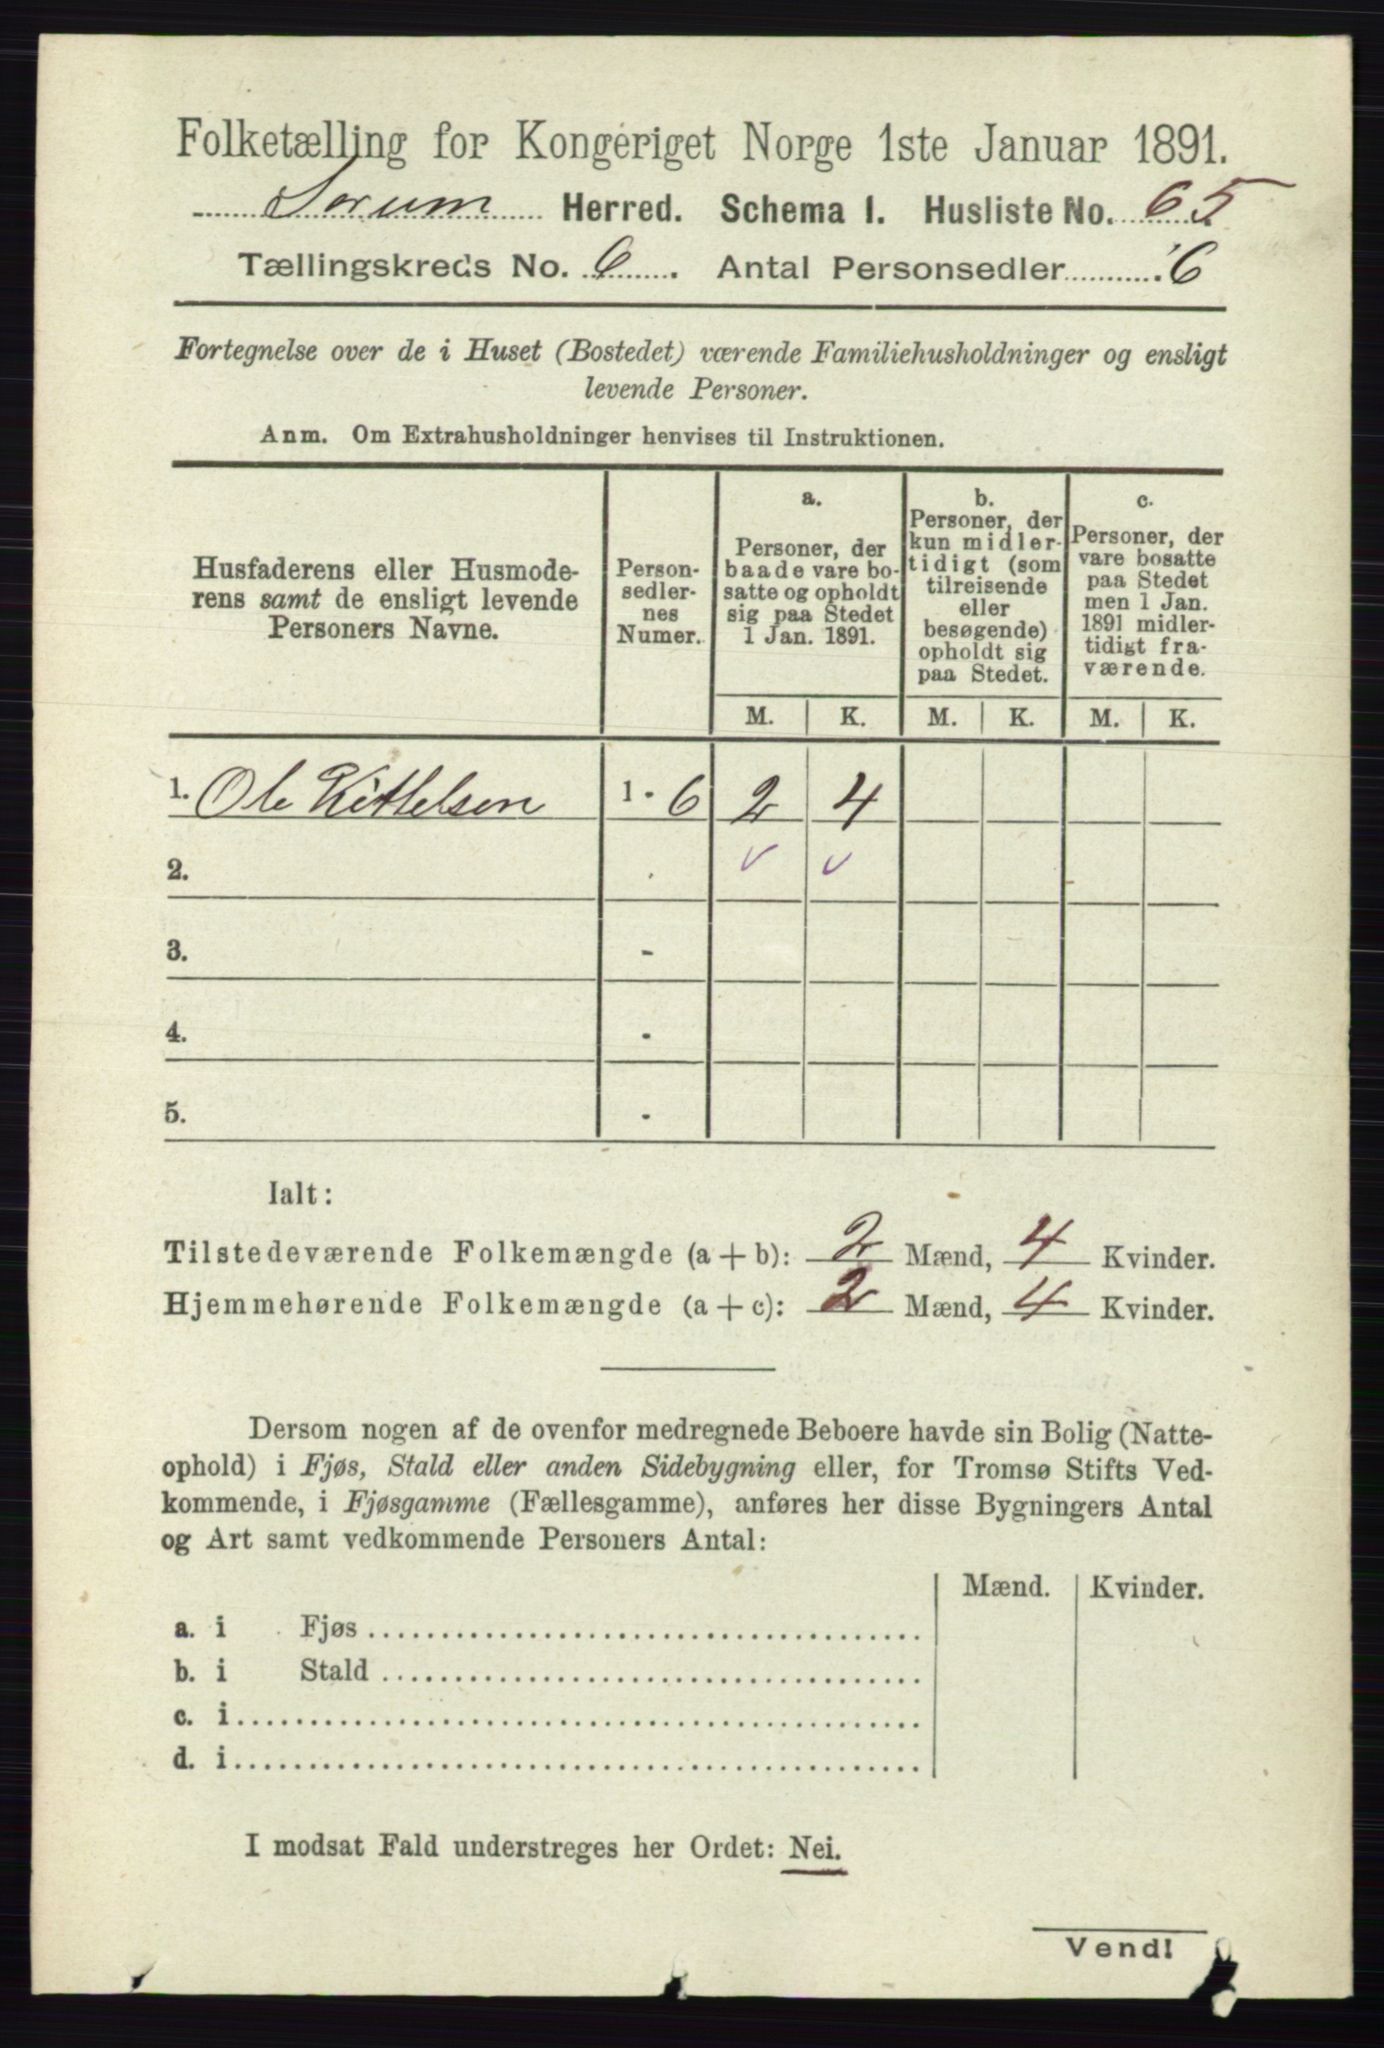 Folketælling for Kongeriget Norge 1ste Januar 1891.
Sorum Herred. Schema I. Husliste No. 65
Tællingskreds No. 6. Antal Personsedler 6
Fortegnelse over de i Huset (Bostedet) værende Familiehusholdninger og ensligt
levende Personer.
Anm. Om Extrahusholdninger henvises til Instruktionen.
Husfaderens eller Husmode-
rens samt de ensligt levende
Personers Navne.
Person-
sedler-
nes
Numer.
a.
Personer, der
baade vare bo-
satte og opholdt
sig paa Stedet
1 Jan. 1891.
b.
Personer, der
kun midler-
tidigt (som
tilreisende
eller
besøgende)
opholdt sig
paa Stedet.
c.
Personer, der
vare bosatte
paa Stedet
men 1 Jan.
1891 midler-
tidigt fra-
værende.
M. K. M. K. M. K.
1. Ole Kittelsen 1 - 6 2 4
2.
3. -
4. -
5. -
Ialt:
Tilstedeværende Folkemængde (a + b): 2 Mænd, 4 Kvinder.
Hjemmehørende Folkemængde (a + c): 2 Mænd, 4 Kvinder.
Dersom nogen af de ovenfor medregnede Beboere havde sin Bolig (Natte-
ophold) i Fjøs, Stald eller anden Sidebygning eller, for Tromsø Stifts Ved-
kommende, i Fjøsgamme (Fællesgamme), anføres her disse Bygningers Antal
og Art samt vedkommende Personers Antal:
Mænd. Kvinder.
a. i Fjøs
b. i Stald
c. i
d. i
I modsat Fald understreges her Ordet: Nei.
Vend!